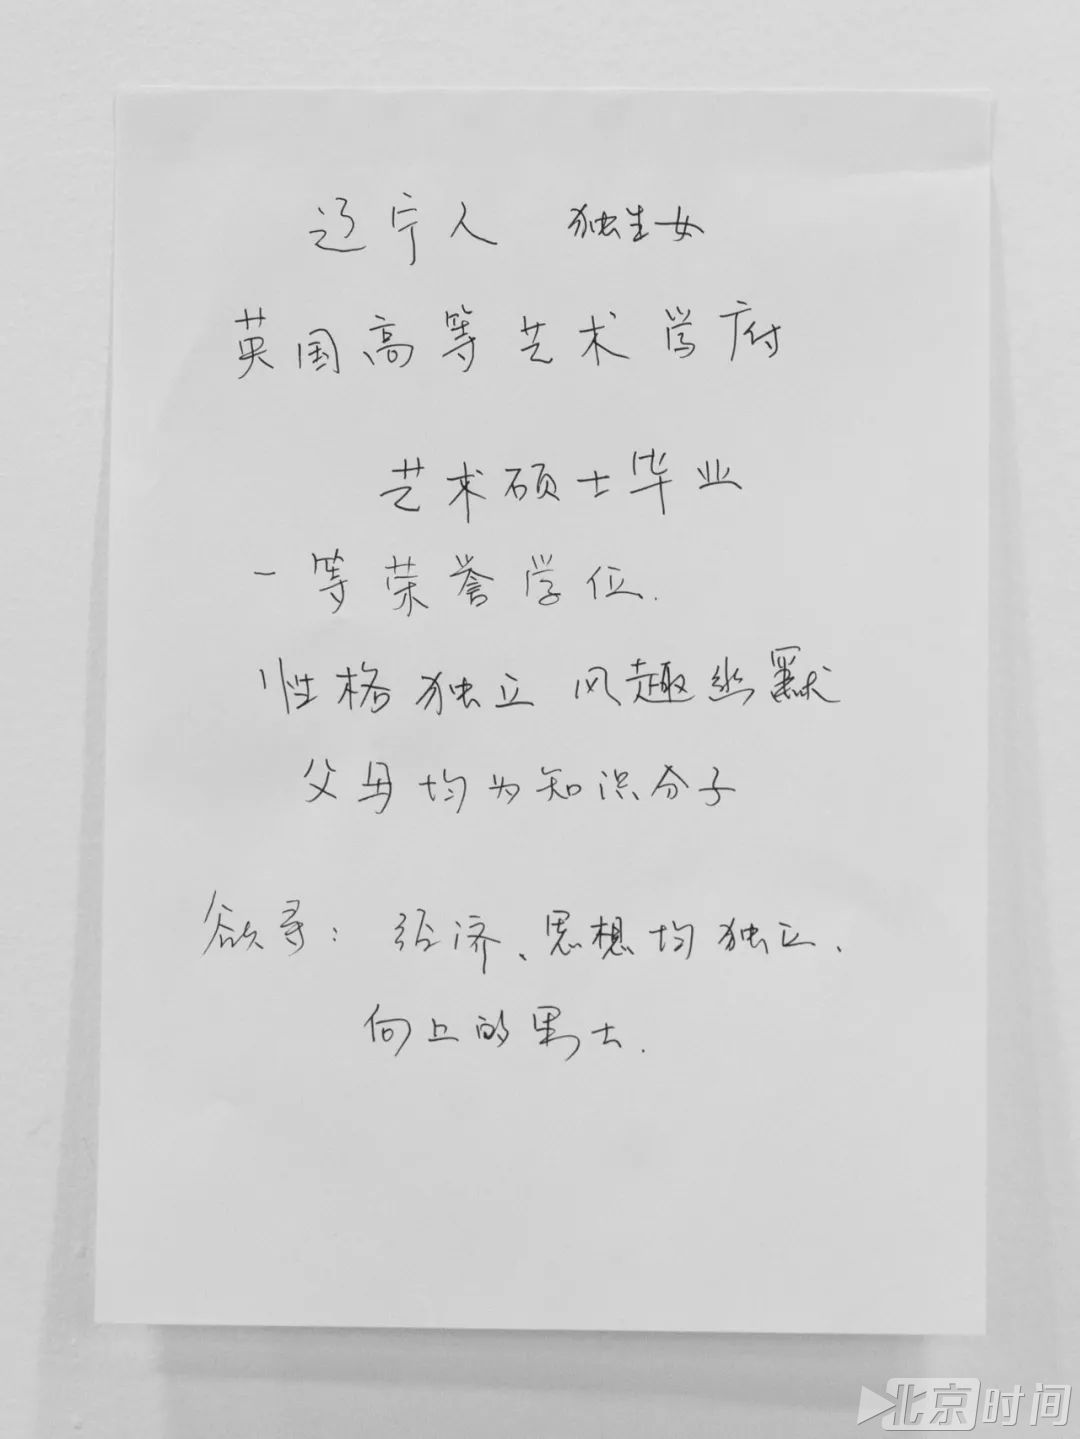 辽宁人 独生女
英国高等艺术学府
艺术硕士毕业
一等荣誉学位.
性格独立 风趣幽默
父母均为知识分子
欲寻：经济、思想均独立、
向上的男士.
北京时间